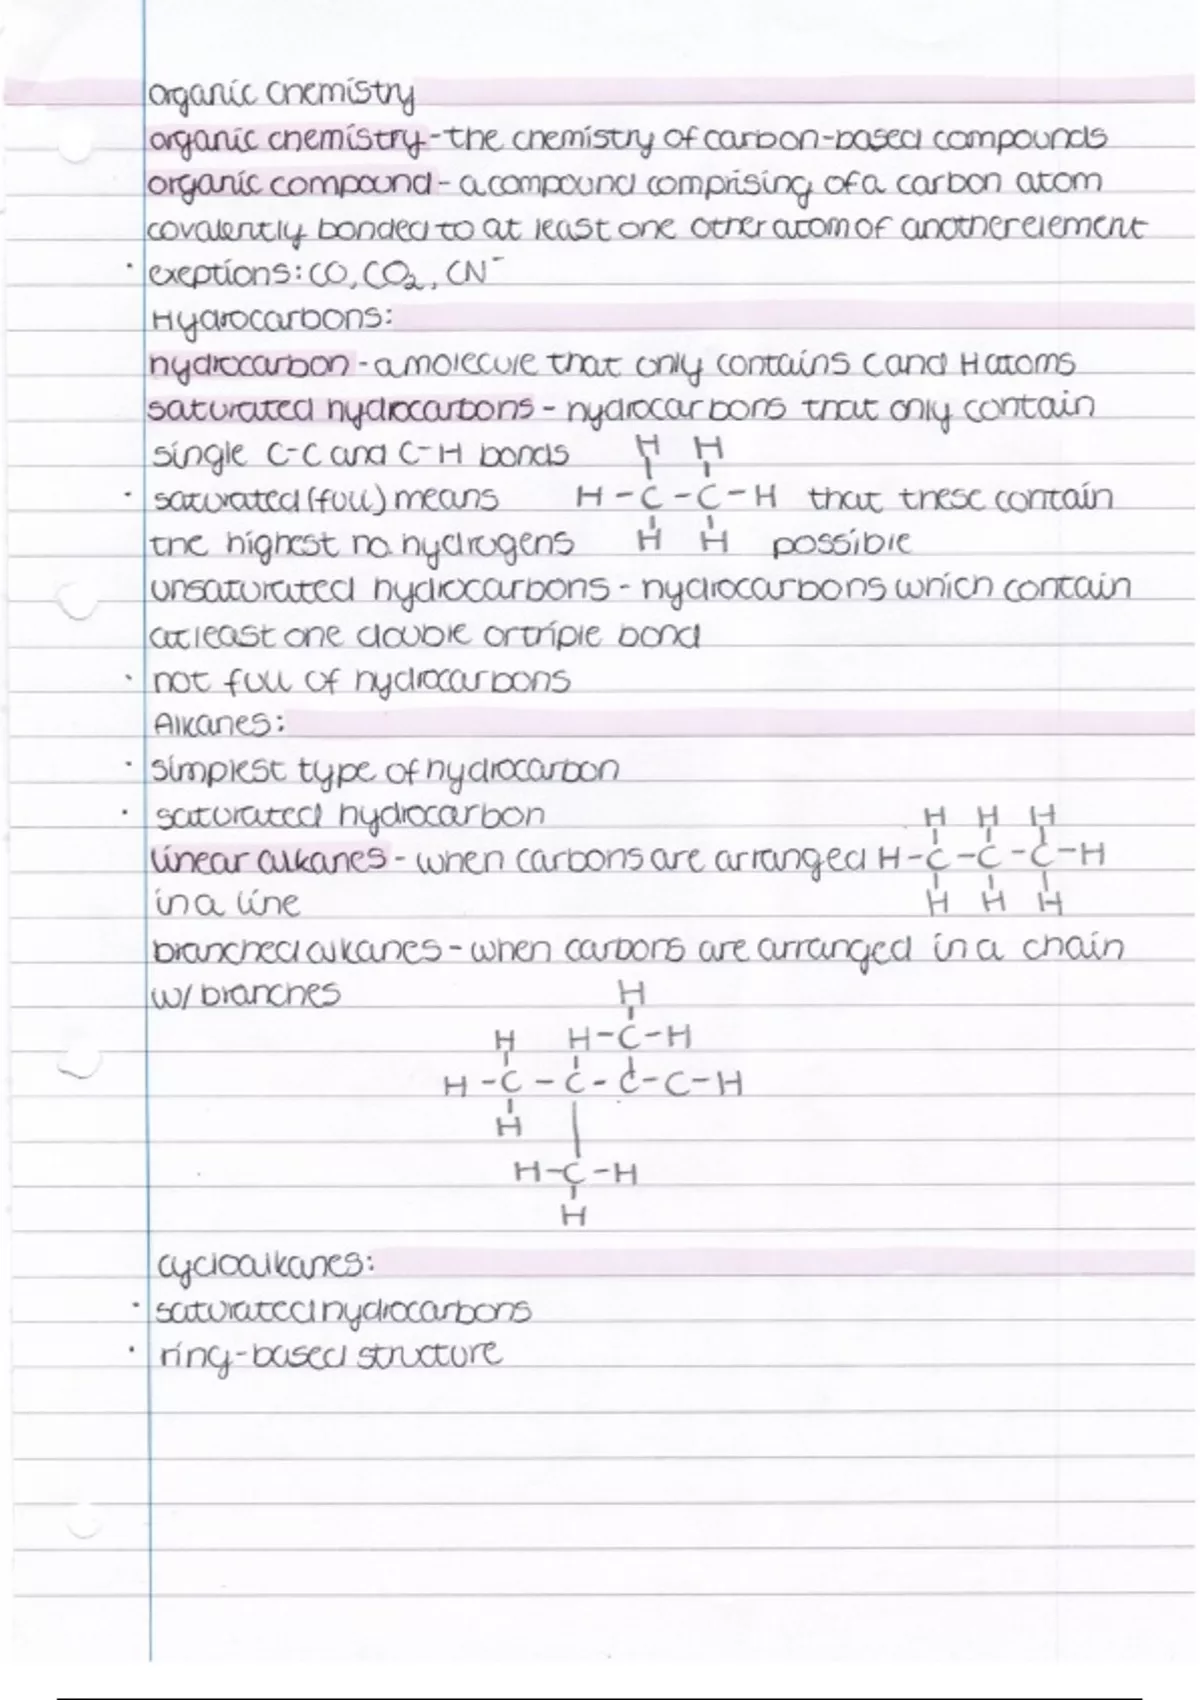 organic chemistry
organic chemistry - the chemistry of carbon-based compounds
organic compound - a compound comprising of a carbon atom
covalently bonded to at least one other atom of another element
· exeptions: CO, CO₂, CN⁻
Hydrocarbons:
hydrocarbon - a molecule that only contains C and H atoms
saturated hydrocarbons - hydrocarbons that only contain
single C-C and C-H bonds H H
· saturated (full) means H-C-C-H that these contain
the highest no. hydrogens H H possible
unsaturated hydrocarbons - hydrocarbons which contain
at least one double or triple bond
· not full of hydrocarbons
Alkanes:
· simplest type of hydrocarbon
· saturated hydrocarbon H H H
linear alkanes - when carbons are arranged H-C-C-C-H
in a line H H H
branched alkanes - when carbons are arranged in a chain
w/ branches H
H H-C-H
H-C-C-C-C-H
H
H-C-H
H
cycloalkanes:
· saturated hydrocarbons
· ring-based structure